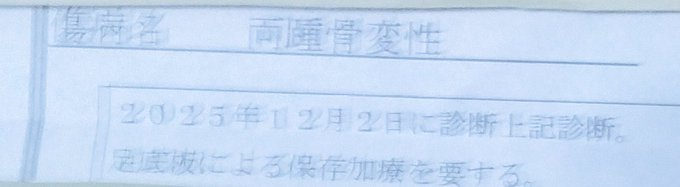 傷病名 両踵骨変性
2025年12月2日に診断上記診断。
足底板による保存加療を要する。